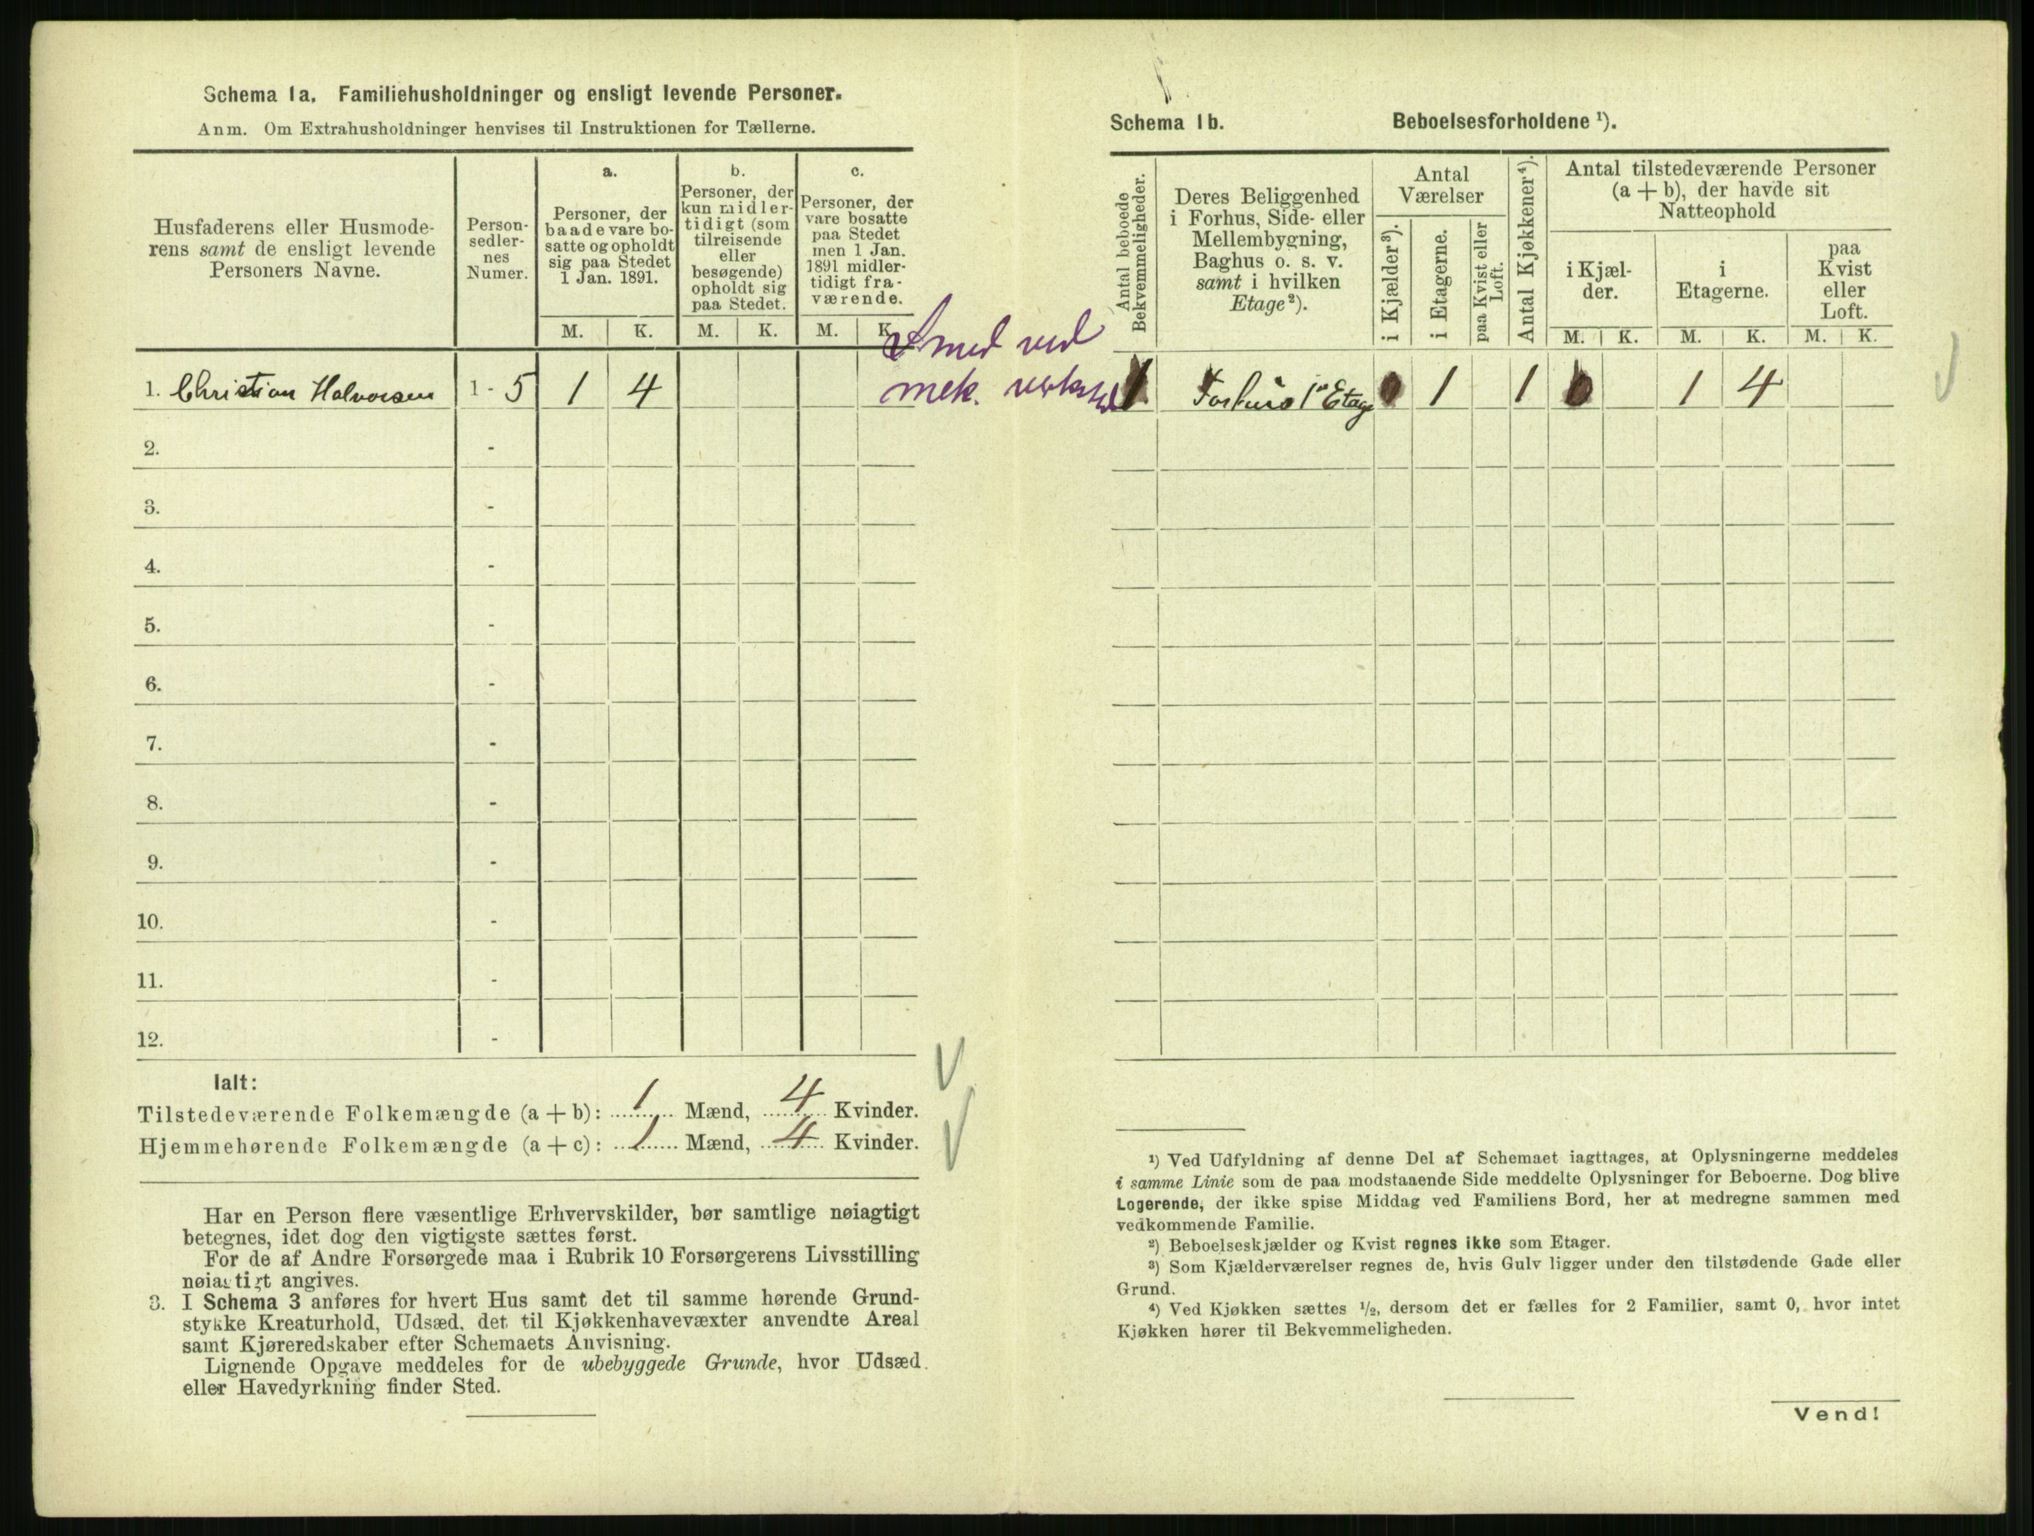 Schema 1a. Familiehusholdninger og ensligt levende Personer.
Anm. Om Extrahusholdninger henvises til Instruktionen for Tællerne.
Husfaderens eller Husmode-
rens samt de ensligt levende
Personers Navne.
Person-
sedler-
nes
Numer.
a.
Personer, der
baade vare bo-
satte og opholdt
sig paa Stedet
1 Jan. 1891.
b.
Personer, der
kun midler-
tidigt (som
tilreisende
eller
besøgende)
opholdt sig
paa Stedet.
c.
Personer, der
vare bosatte
paa Stedet
men 1 Jan.
1891 midler-
tidigt fra-
værende.
M. K. M. K. M. K.
Smed ved
mek. verksted
1. Christian Halvorsen 1 - 5 1 4
2. -
3. -
4. -
5. -
6. -
7. -
8. -
9. -
10. -
11. -
12. -
Ialt:
Tilstedeværende Folkemængde (a + b): 1 Mænd, 4 Kvinder.
Hjemmehørende Folkemængde (a + c): 1 Mænd, 4 Kvinder.
Har en Person flere væsentlige Erhvervskilder, bør samtlige nøiagtigt
betegnes, idet dog den vigtigste sættes først.
For de af Andre Forsørgede maa i Rubrik 10 Forsørgerens Livsstilling
nøiagtigt angives.
3. I Schema 3 anføres for hvert Hus samt det til samme hørende Grund-
stykke Kreaturhold, Udsæd, det til Kjøkkenhavevæxter anvendte Areal
samt Kjøreredskaber efter Schemaets Anvisning.
Lignende Opgave meddeles for de ubebyggede Grunde, hvor Udsæd
eller Havedyrkning finder Sted.
Schema 1b. Beboelsesforholdene ¹).
Antal beboede
Bekvemmeligheder.
Deres Beliggenhed
i Forhus, Side- eller
Mellembygning,
Baghus o. s. v.
samt i hvilken
Etage²).
Antal
Værelser
i Kjælder³).
i Etagerne.
paa Kvist eller
Loft.
Antal Kjøkkener⁴).
Antal tilstedeværende Personer
(a + b), der havde sit
Natteophold
i Kjæl-
der.
i
Etagerne.
paa
Kvist
eller
Loft.
M. K. M. K. M. K.
1 Forhus 1ste Etage 0 1 1 0 1 4
¹) Ved Udfyldning af denne Del af Schemaet iagttages, at Oplysningerne meddeles
i samme Linie som de paa modstaaende Side meddelte Oplysninger for Beboerne. Dog blive
Logerende, der ikke spise Middag ved Familiens Bord, her at medregne sammen med
vedkommende Familie.
²) Beboelseskjælder og Kvist regnes ikke som Etager.
³) Som Kjælderværelser regnes de, hvis Gulv ligger under den tilstødende Gade eller
Grund.
⁴) Ved Kjøkken sættes ½, dersom det er fælles for 2 Familier, samt 0, hvor intet
Kjøkken hører til Bekvemmeligheden.
Vend!